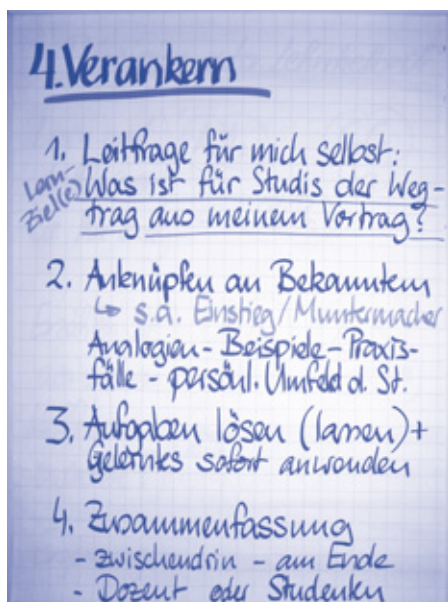 4. Verankern
1. Leitfrage für mich selbst:
Lern-
Ziel(e)
Was ist für Studis der Weg-
trag aus meinem Vortrag?
2. Anknüpfen an Bekanntem
↳ s.a. Einstieg/Muntermacher
Analogien - Beispiele - Praxis-
fälle - persönl. Umfeld d. St.
3. Aufgaben lösen (lassen) +
Gelerntes sofort anwenden
4. Zusammenfassung
- zwischendrin - am Ende
- Dozent oder Studenten